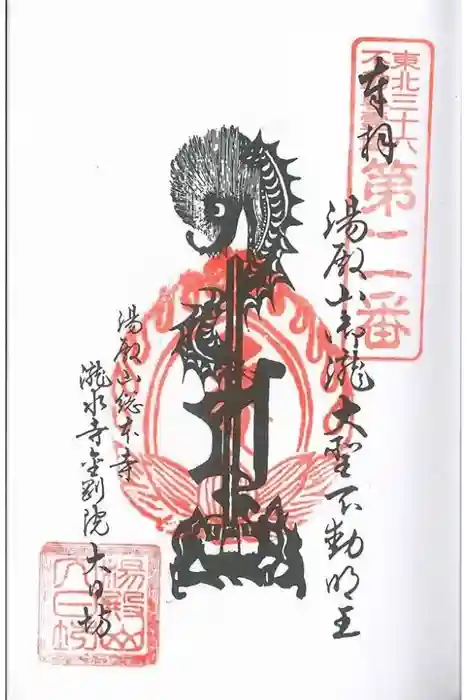 東北三十六
不
第二番
奉拝
湯殿山御瀧大聖不動明王
湯殿山総本寺
瀧水寺金剛院大日坊
湯殿山
大日坊